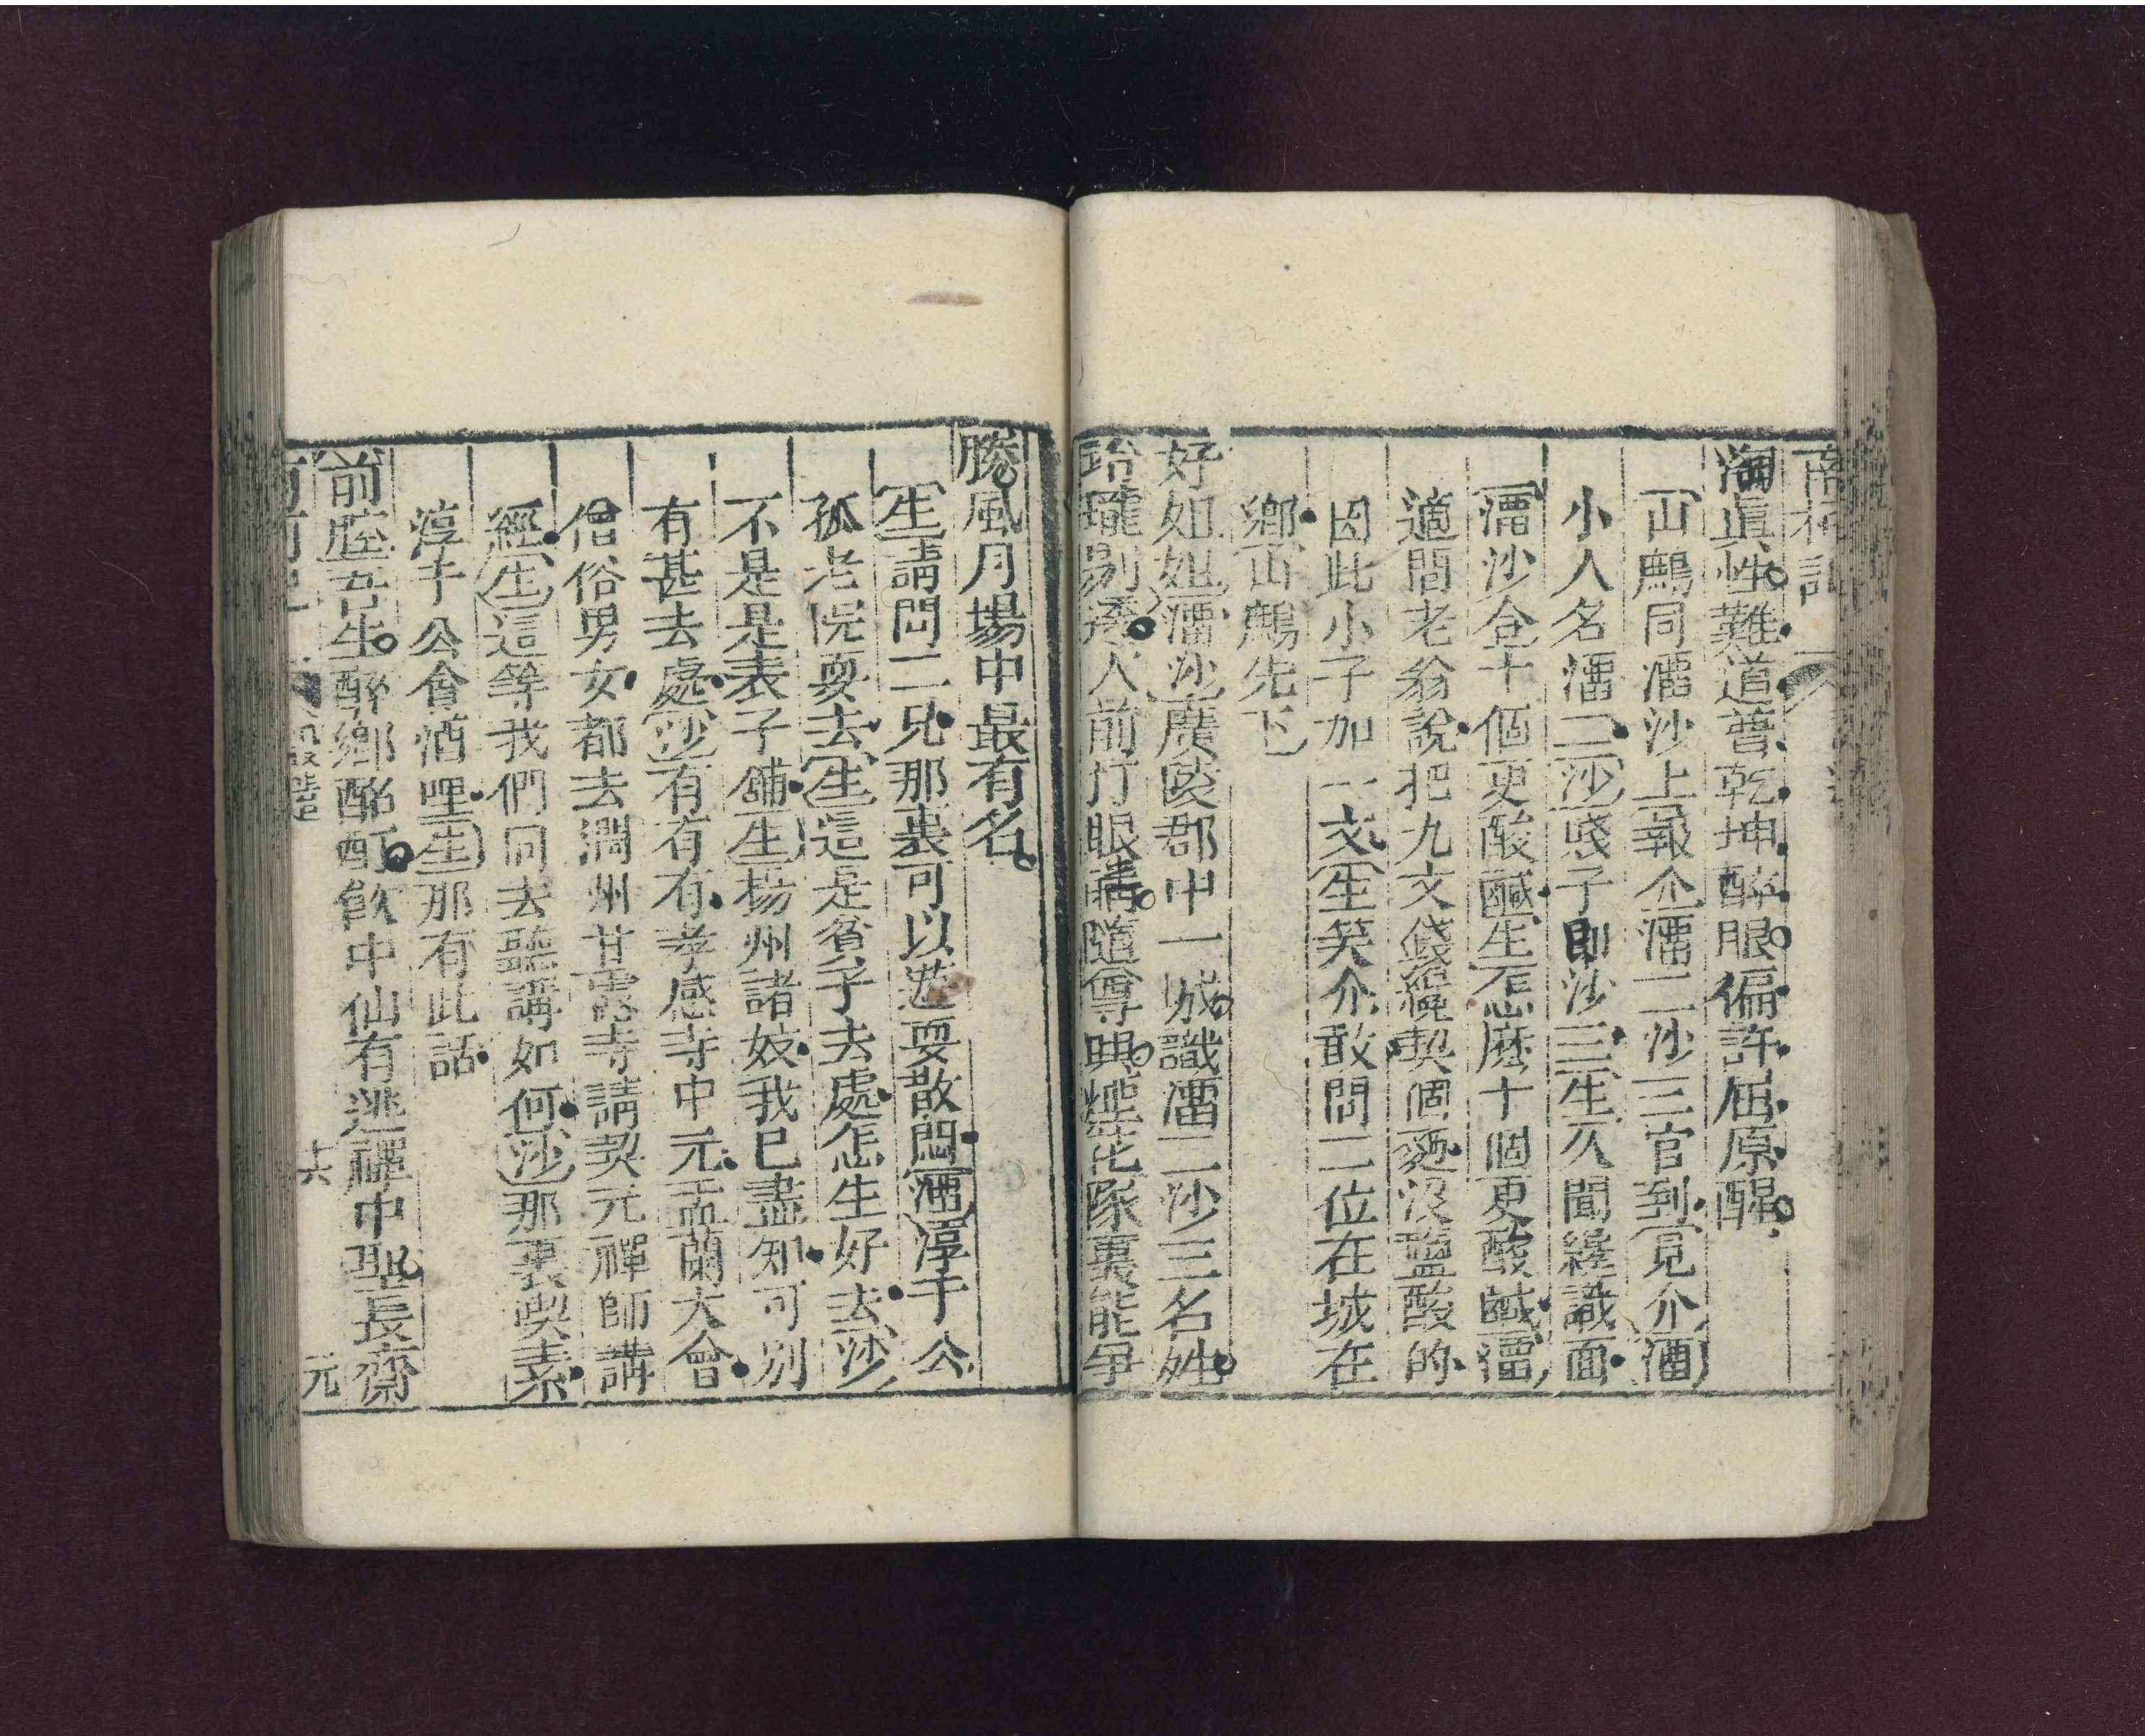 南柯記
淘眞性難道普乾坤醉眼偏許屈原醒
丑鷓同溜沙上報介溜二沙三官到見介溜
小人名溜二沙賤子即沙三生久聞纔識面
溜沙仝十個更酸鹹生怎麼十個更酸鹹溜
適間老翁說把九文錢纔契個麵沒鹽酸的
因此小子加一文生笑介敢問二位在城在
鄉丑鷓先下
好姐姐溜沙廣陵郡中一城識溜二沙三名姓
玲瓏剔透人前打眼睛隨尊興煙花隊裏能爭
勝風月塲中最有名
生請問二兄那裏可以遊耍散悶溜淳于公
孤老院耍去生這是貧子去處怎生好去沙
不是是表子鋪生揚州諸妓我已盡知可別
有甚去處沙有有有孝感寺中元盂蘭大會
僧俗男女都去潤州甘露寺請契元禪師講
經生這等我們同去聽講如何沙那裏喫素
淳于公會酒哩生那有此話
前腔吾生醉鄉酩酊飲中仙有逃禪中聖長齋
十六
元